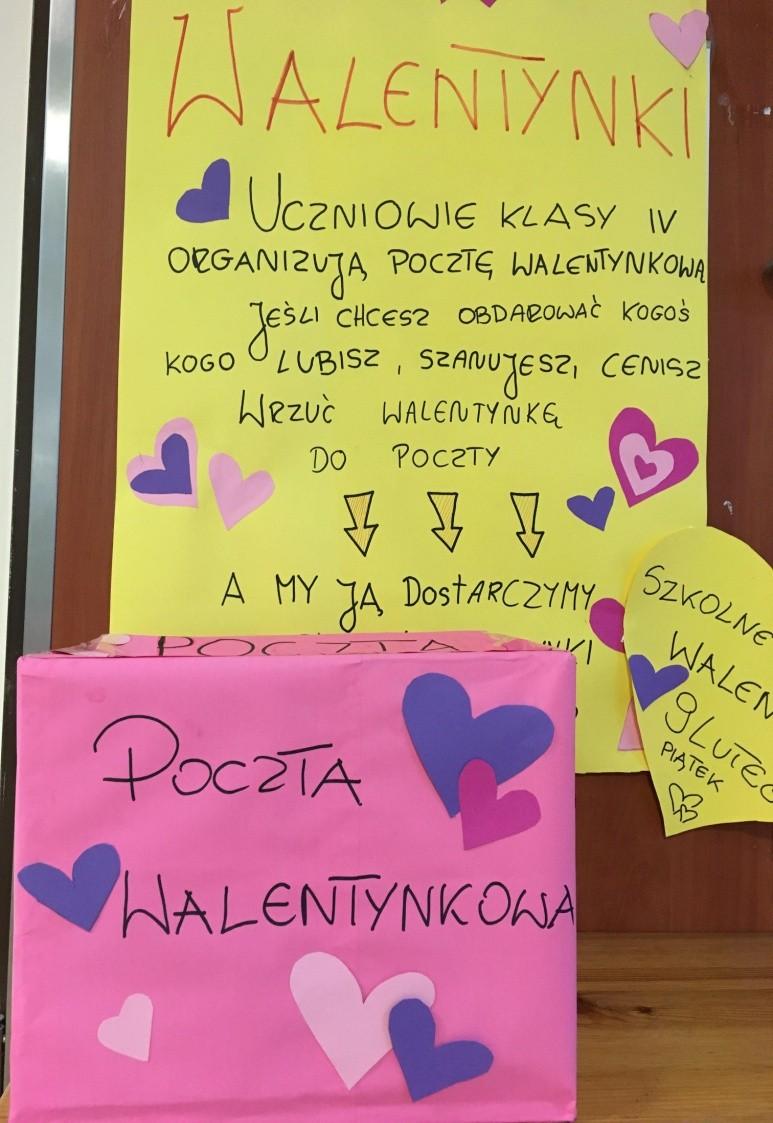 WALENTYNKI
UCZNIOWIE KLASY IV
ORGANIZUJĄ POCZTĘ WALENTYNKOWĄ
JEŚLI CHCESZ OBDAROWAĆ KOGOŚ
KOGO LUBISZ, SZANUJESZ, CENISZ
WRZUĆ WALENTYNKĘ
DO POCZTY
A MY JĄ DOSTARCZYMY
SZKOLNE
PIĄTEK
POCZTA
POCZTA
WALENTYNKOWA